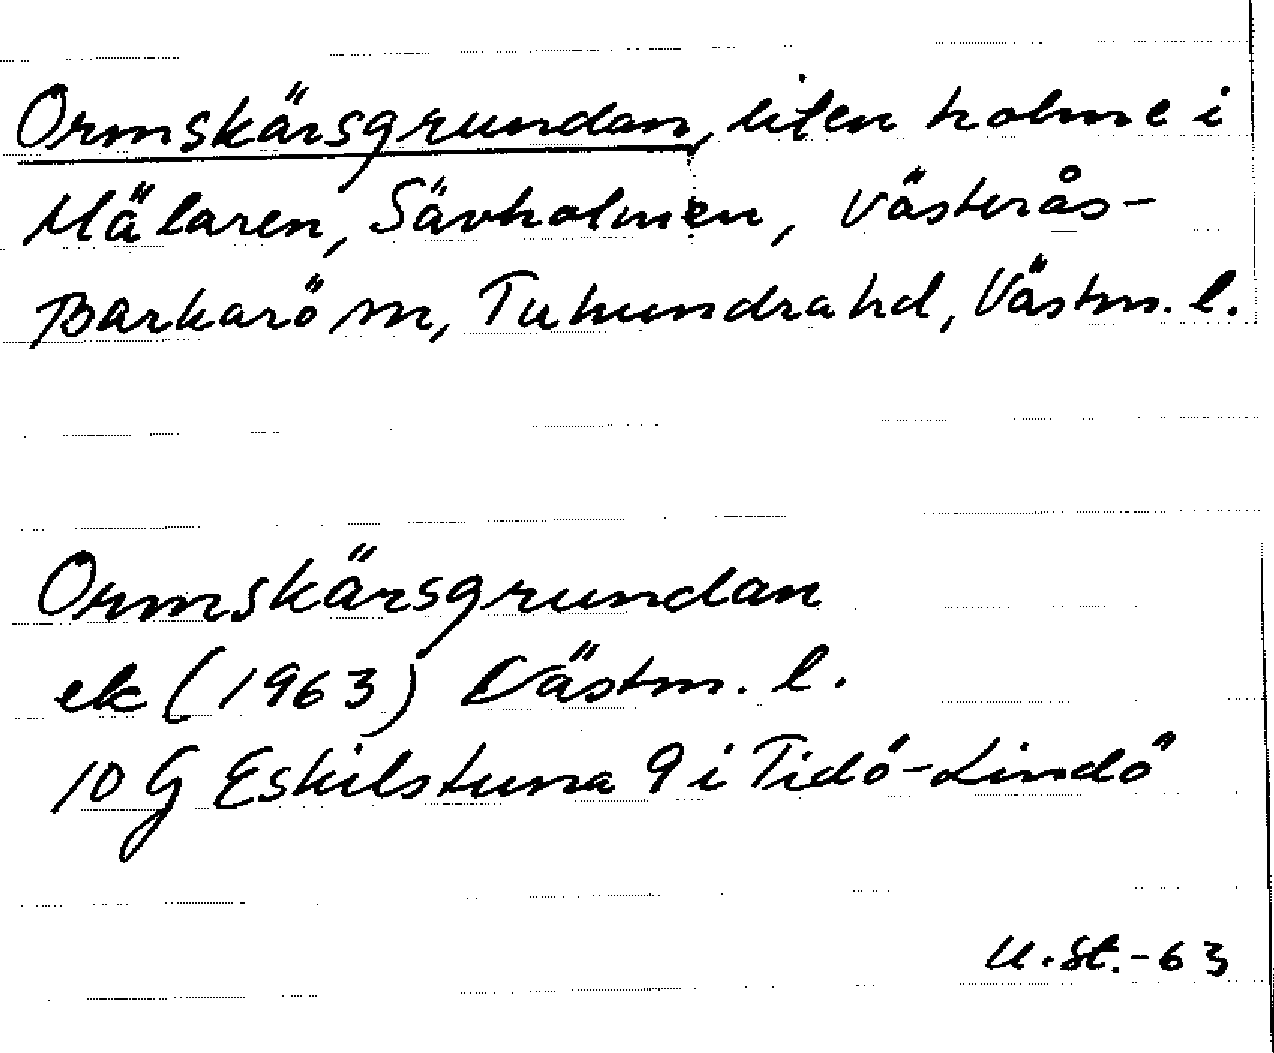 Ormskärsgrundan, liten holme i
Mälaren, Sävholmen, Västerås-
Barkarö sn, Tuhundra hd, Västm. l.
Ormskärsgrundan
ek (1963) Västm. l.
10 G Eskilstuna 9 i Tidö-Lindö
U. St. -63